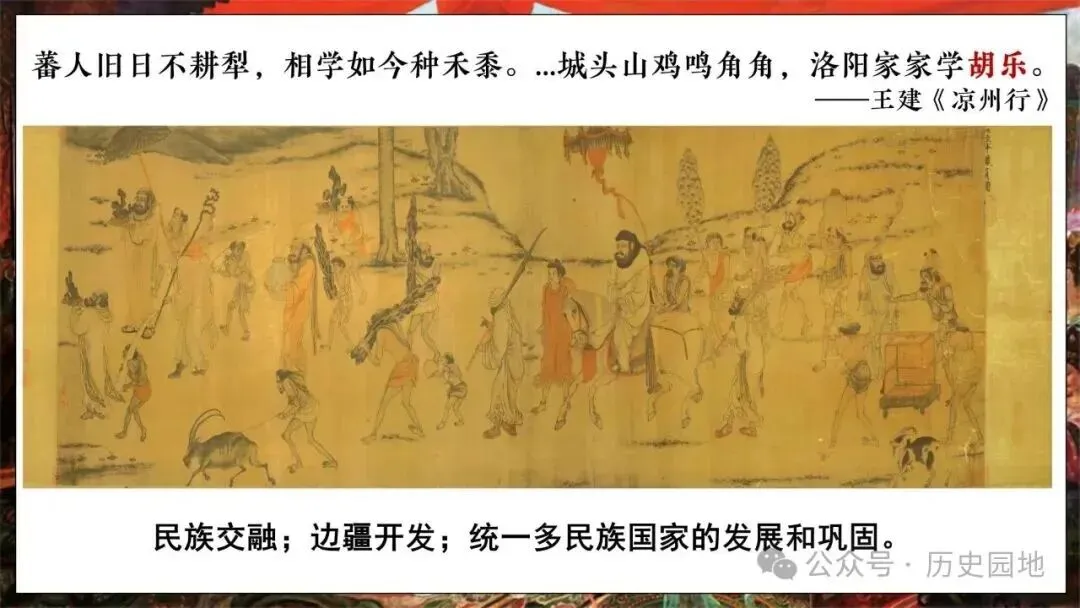 蕃人旧日不耕犁，相学如今种禾黍。...城头山鸡鸣角角，洛阳家家学胡乐。
——王建《凉州行》
民族交融；边疆开发；统一多民族国家的发展和巩固。
公众号·历史园地